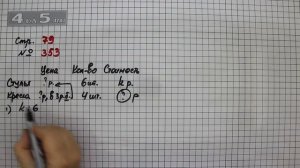 4 5
Стр. 79
№ 353
Цена Кол-во Стоимость
Стулы ?р. 6 шт. k р.
Кресла ?р, в 3р. Б 4 шт. ? р
1) k : 6